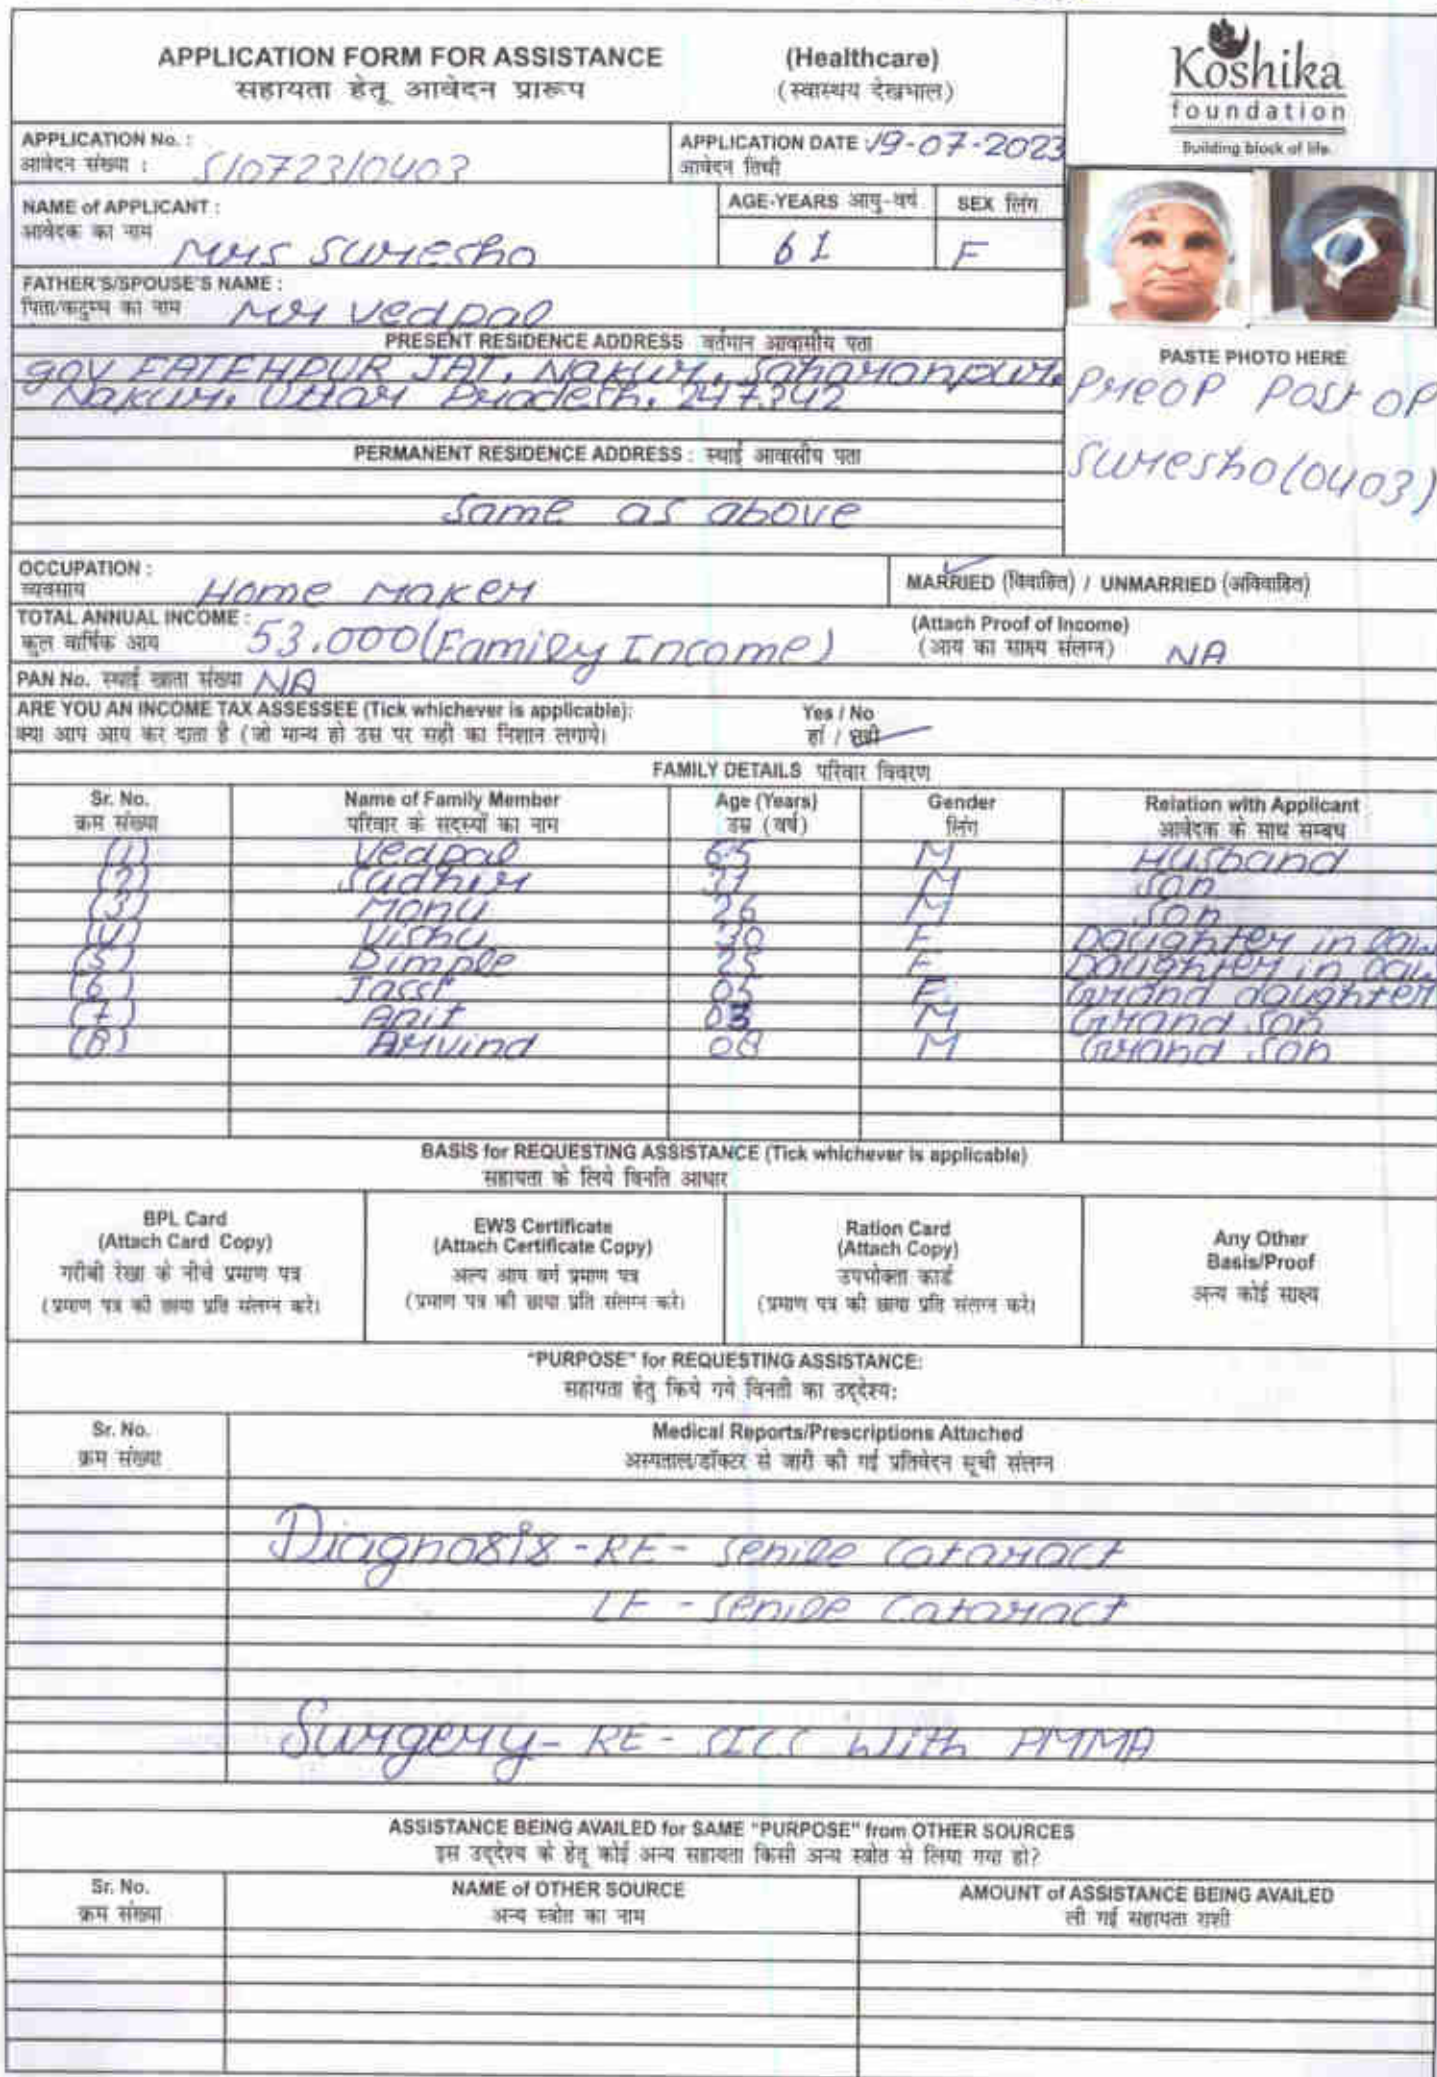 APPLICATION FORM FOR ASSISTANCE (Healthcare)
सहायता हेतू आवेदन प्रारूप (स्वास्थय देखभाल)
Koshika
foundation
Building block of life.
APPLICATION No. :
आवेदन संख्या : S/0723/0403
APPLICATION DATE : 19-07-2023
आवेदन तिथी
NAME of APPLICANT :
आवेदक का नाम Mrs Suresho
AGE-YEARS आयु-वर्ष 61
SEX लिंग F
FATHER'S/SPOUSE'S NAME :
पिता/कटुम्ब का नाम Mr Vedpal
PRESENT RESIDENCE ADDRESS वर्तमान आवासीय पता
FATEHPUR JAT, Nakur, Saharanpur,
Nakur, Uttar Pradesh, 247342
PERMANENT RESIDENCE ADDRESS : स्थाई आवासीय पता
Same as above
PASTE PHOTO HERE
PreOP Post OP
Suresho (0403)
OCCUPATION :
व्यवसाय Home Maker
MARRIED (विवाहित) / UNMARRIED (अविवाहित)
TOTAL ANNUAL INCOME :
कुल वार्षिक आय 53,000 (Family Income)
(Attach Proof of Income)
(आय का साक्ष्य संलग्न) NA
PAN No. स्थाई खाता संख्या NA
ARE YOU AN INCOME TAX ASSESSEE (Tick whichever is applicable): Yes / No
क्या आप आय कर दाता है (जो मान्य हो उस पर सही का निशान लगाये। हाँ / नही
FAMILY DETAILS परिवार विवरण
Sr. No. Name of Family Member Age (Years) Gender Relation with Applicant
क्रम संख्या परिवार के सदस्यों का नाम उम्र (वर्ष) लिंग आवेदक के साथ सम्बध
(1) Vedpal 65 M Husband
(2) Sudhir 37 M Son
(3) Monu 26 M Son
(4) Vishu 30 F Daughter in law
(5) Dimple 25 F Daughter in law
(6) 05 F Grand daughter
(7) Anit 03 M Grand son
(8) Arvind 08 M Grand son
BASIS for REQUESTING ASSISTANCE (Tick whichever is applicable)
सहायता के लिये विनति आधार
BPL Card
(Attach Card Copy)
गरीबी रेखा के नीचे प्रमाण पत्र
(प्रमाण पत्र की छाया प्रति संलग्न करे।
EWS Certificate
(Attach Certificate Copy)
अल्प आय वर्ग प्रमाण पत्र
(प्रमाण पत्र की छाया प्रति संलग्न करे।
Ration Card
(Attach Copy)
उपभोक्ता कार्ड
(प्रमाण पत्र की छाया प्रति संलग्न करे।
Any Other
Basis/Proof
अन्य कोई साक्ष्य
"PURPOSE" for REQUESTING ASSISTANCE:
सहायता हेतु किये गये विनती का उद्देश्य:
Sr. No. Medical Reports/Prescriptions Attached
क्रम संख्या अस्पताल/डॉक्टर से जारी की गई प्रतिवेदन सूची संलग्न
Diagnosis - RE - Senile Cataract
LE - Senile Cataract
Surgery - RE - SICS With PMMA
ASSISTANCE BEING AVAILED for SAME "PURPOSE" from OTHER SOURCES
इस उद्देश्य के हेतू कोई अन्य सहायता किसी अन्य स्त्रोत से लिया गया हो?
Sr. No. NAME of OTHER SOURCE AMOUNT of ASSISTANCE BEING AVAILED
क्रम संख्या अन्य स्त्रोत का नाम ली गई सहायता राशी